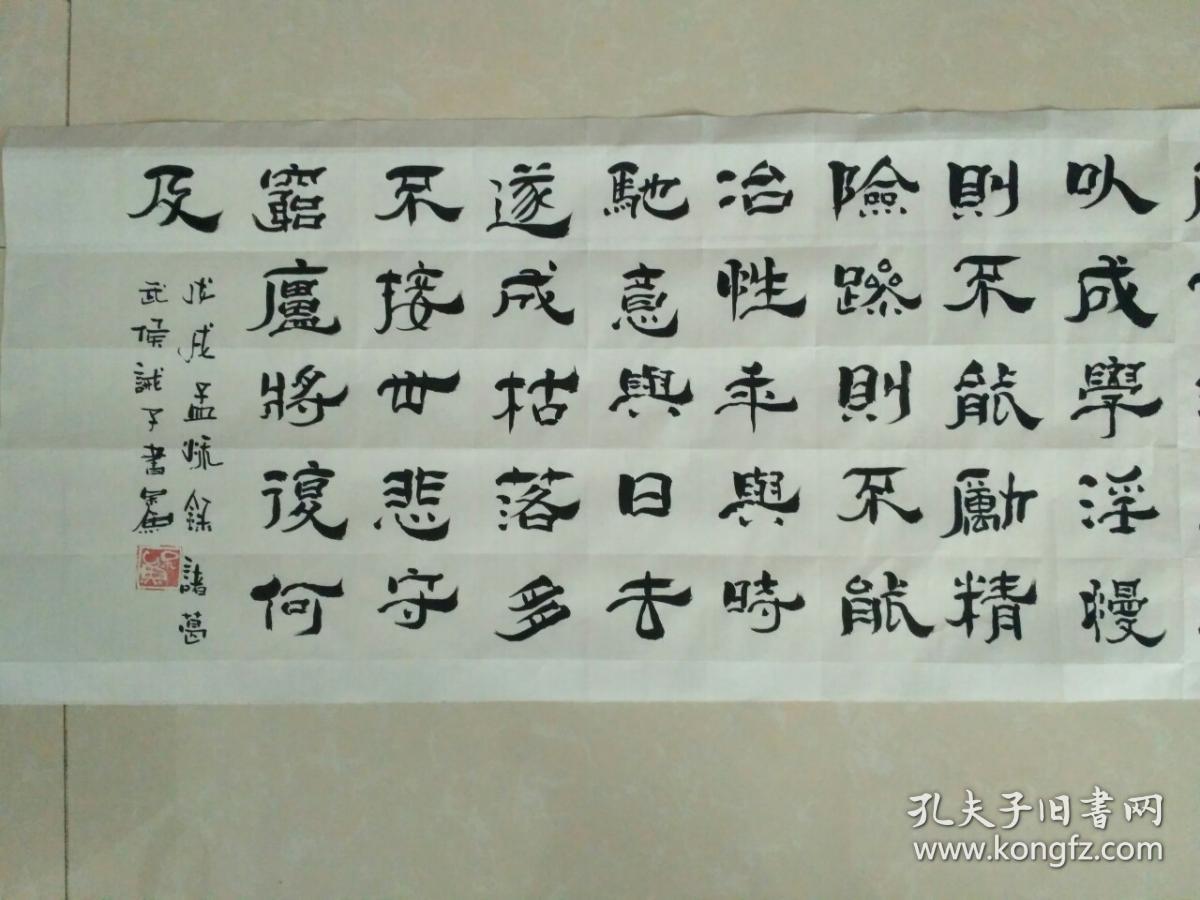 以成學淫漫
則不能勵精
險躁則不能
冶性年與時
馳意與日去
遂成枯落多
不接世悲守
窮廬將復何
及
戊戌孟秋錄諸葛
武侯誡子書
孔夫子旧书网
www.kongfz.com